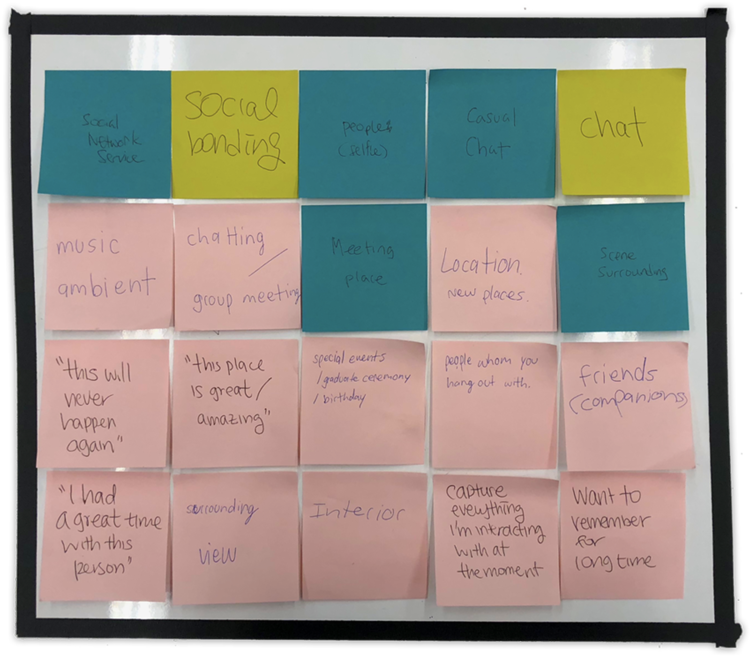 Social
Network
Service
social
bonding
people
(selfie)
Casual
Chat
chat
music
ambient
chatting
/
group meeting
Meeting
place
Location.
New places.
Scene
Surrounding
"this will
never
happen
again"
"this place
is great/
amazing"
special events
/graduate ceremony
/birthday
people whom you
hang out with.
friends
(companions)
"I had
a great time
with this
person"
surrounding
view
Interior
capture
everything
I'm intracting
with at
the moment
Want to
remember
for
long time